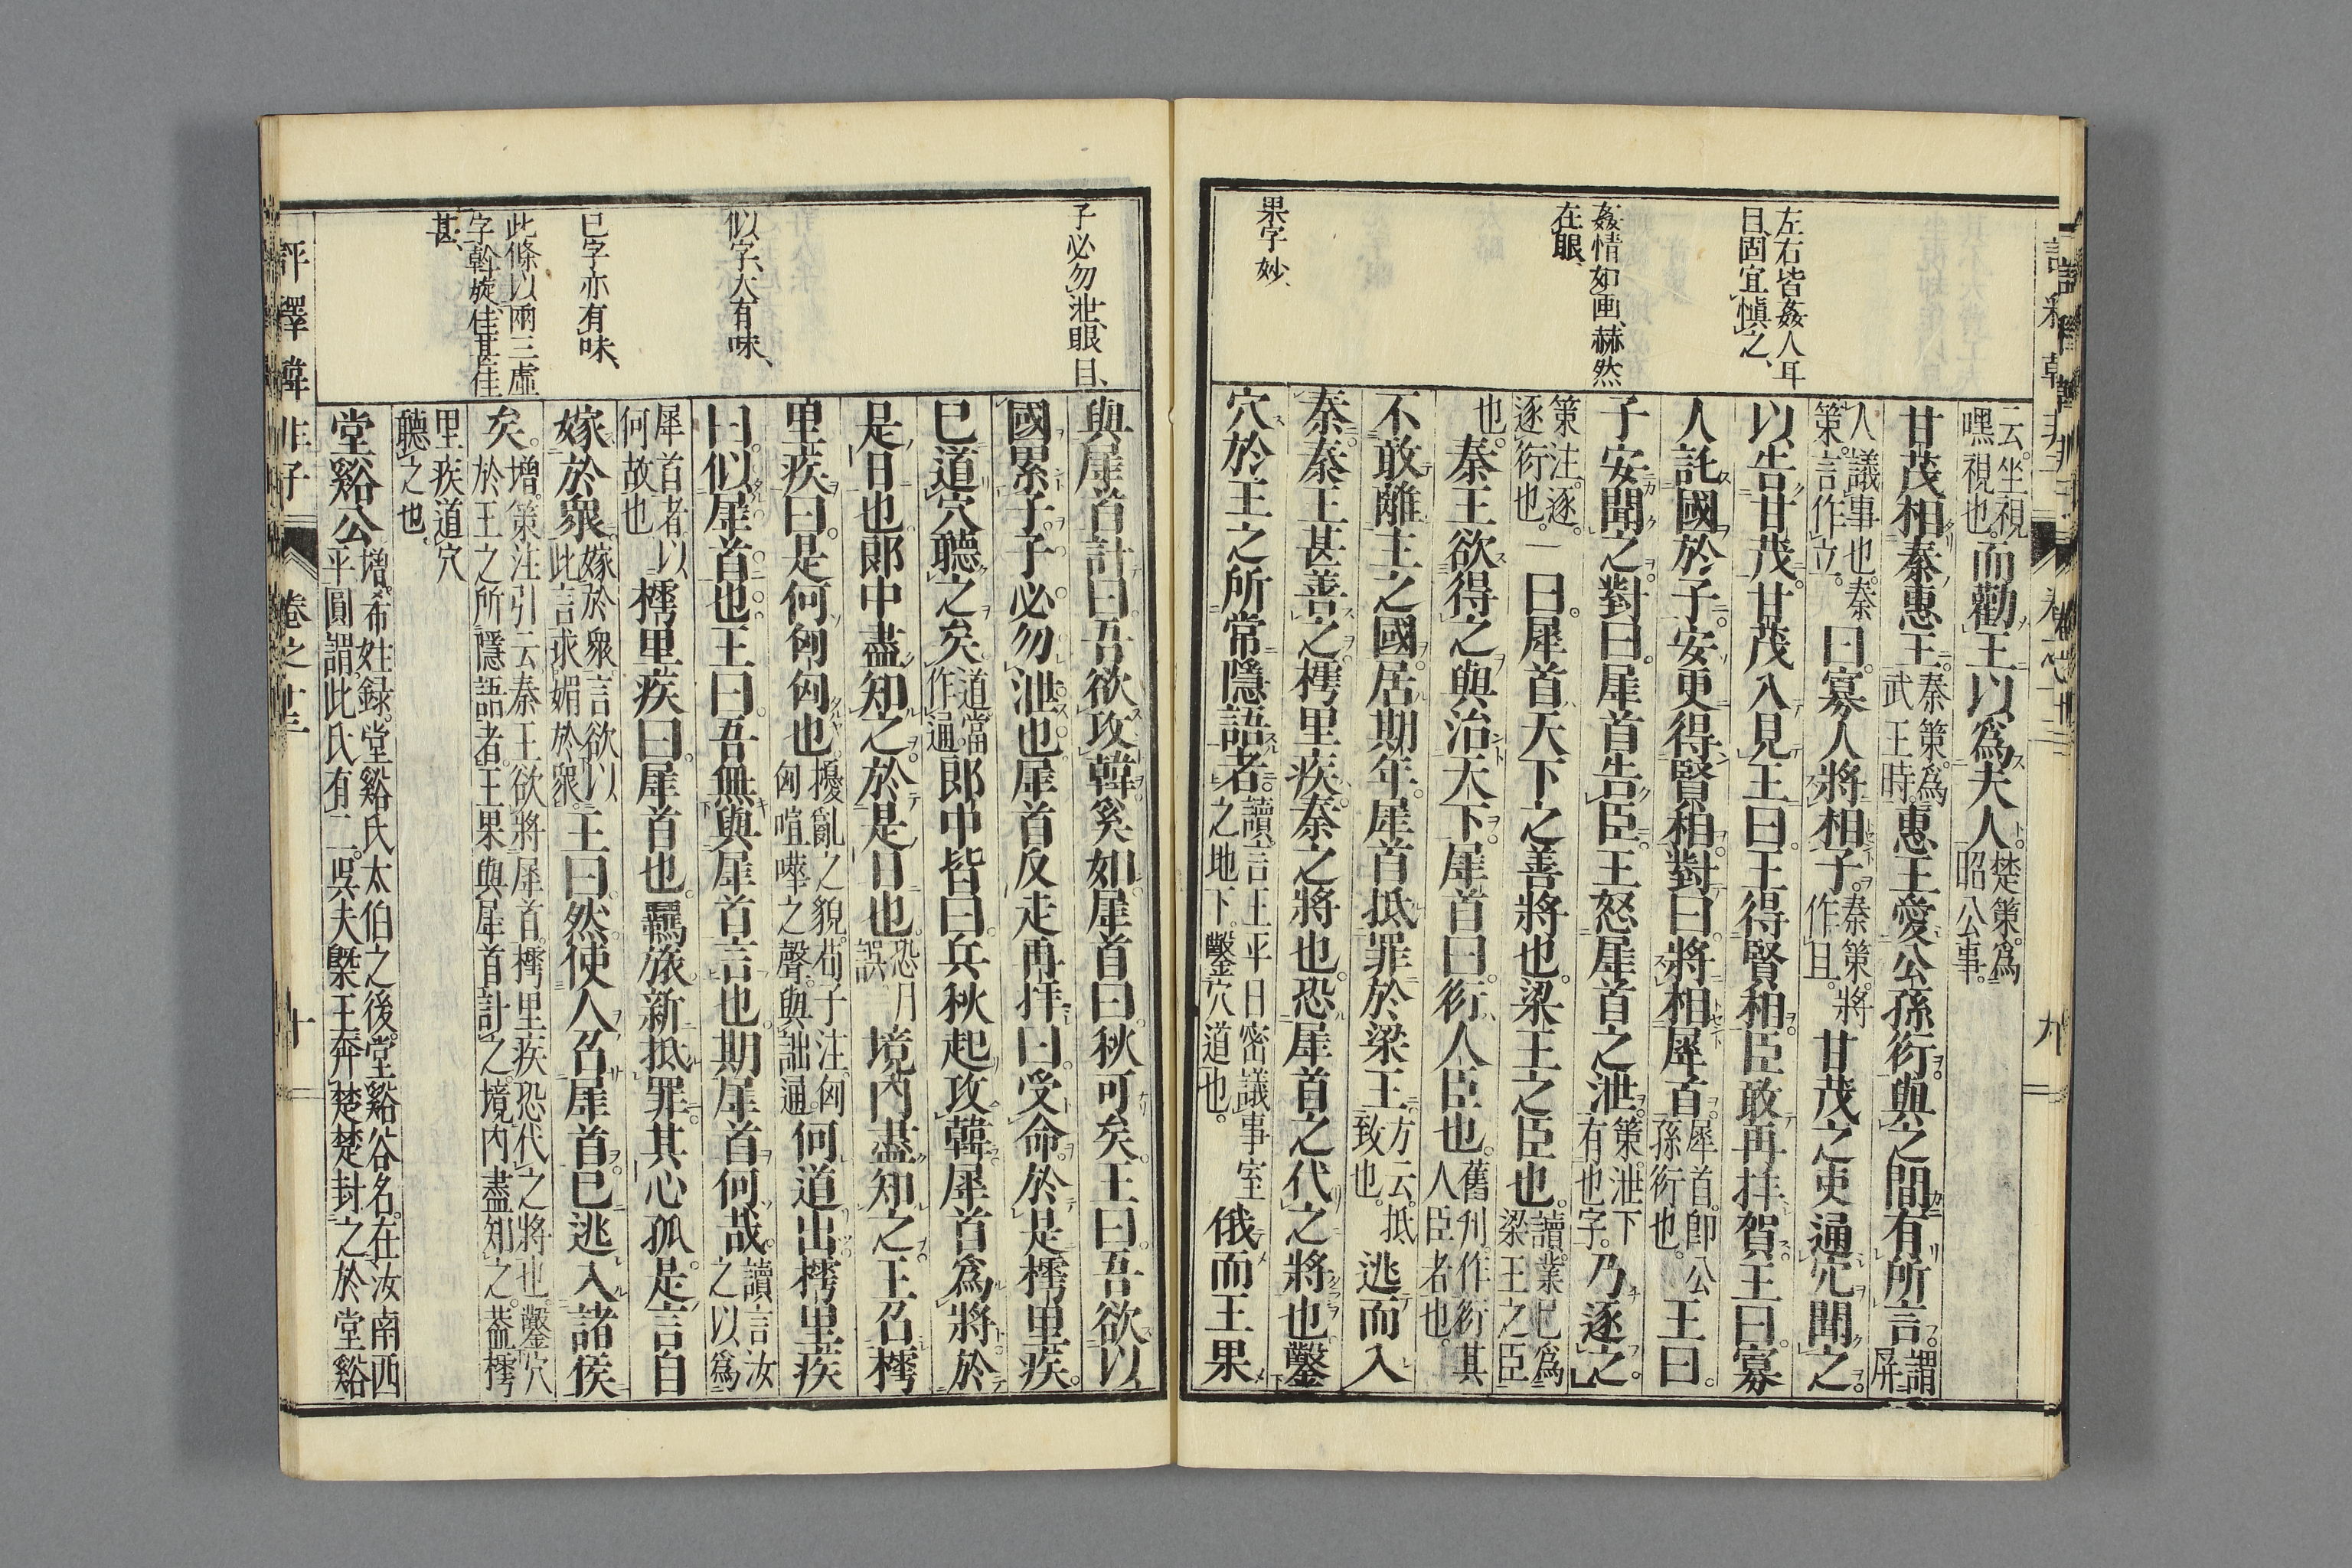 左右皆姦人耳
目、固宜愼之、
姦情如画、赫然
在眼、
果字妙、
云。坐視
嘿視也。而勸王以爲夫人。楚策。爲
昭公事。
甘茂相秦惠王。秦策。爲
武王時。惠王愛公孫衍。與之間有所言。謂屏
人議事也。秦
策。言作立。曰。寡人將相子。秦策。將
作且。甘茂之吏通穴聞之。
以告甘茂。甘茂入見王曰。王得賢相。臣敢再拝賀。王曰。寡
人託國於子。安更得賢相。對曰。將相犀首。犀首。卽公
孫衍也。王曰。
子安聞之。對曰。犀首告臣。王怒犀首之泄。策。泄下
有也字。乃逐之。
策注。逐。
逐衍也。一曰。犀首天下之善將也。梁王之臣也。讀。業已爲
梁王之臣
也。秦王欲得之與治天下。犀首曰。衍人臣也。舊刋作衍其
人臣者也。
不敢離主之國。居期年。犀首抵罪於梁王。方云。抵
致也。逃而入
秦。秦王甚善之。樗里疾。秦之將也。恐犀首之代之將也。鑿
穴於王之所常隱語者。讀。言王平日密議事室
之地下。鑿穴道也。俄而王果
子必勿泄、眼目、
似字、大有味、
已字亦有味、
此條以兩三虛
字斡旋、佳甚佳
甚、
與犀首計曰。吾欲攻韓。奚如。犀首曰。秋可矣。王曰。吾欲以
國累子。子必勿泄也。犀首反走再拝曰。受命。於是樗里疾。
已道穴聽之矣。道當
作通。郎中皆曰。兵秋起攻韓。犀首爲將。於
是日也。郎中盡知之。於是日也。恐月
誤。境内盡知之。王召樗
里疾曰。是何匈匈也。擾亂之貌。荀子注。匈
匈喧嘩之聲。與訩通。何道出。樗里疾
曰。似犀首也。王曰。吾無與犀首言也。期犀首何哉。讀言汝
之以爲
犀首者以
何故也樗里疾曰。犀首也。羈旅新抵罪。其心孤。是言自
嫁於衆。嫁於衆言欲以
此言求媚於衆。王曰。然。使人召犀首。已逃入諸侯
矣。增。策注引云秦王欲將犀首。樗里疾恐代之將也。鑿穴
於王之所隱語者。王果與犀首計之。境内盡知之。葢樗
里疾道穴
聽之也。
堂谿公增。希姓録。堂谿氏太伯之後。堂谿谷名。在汝南西
平圓謂。此氏有二。吳夫槩王奔楚。楚封之於堂谿
評釋韓非子　卷之十三　十